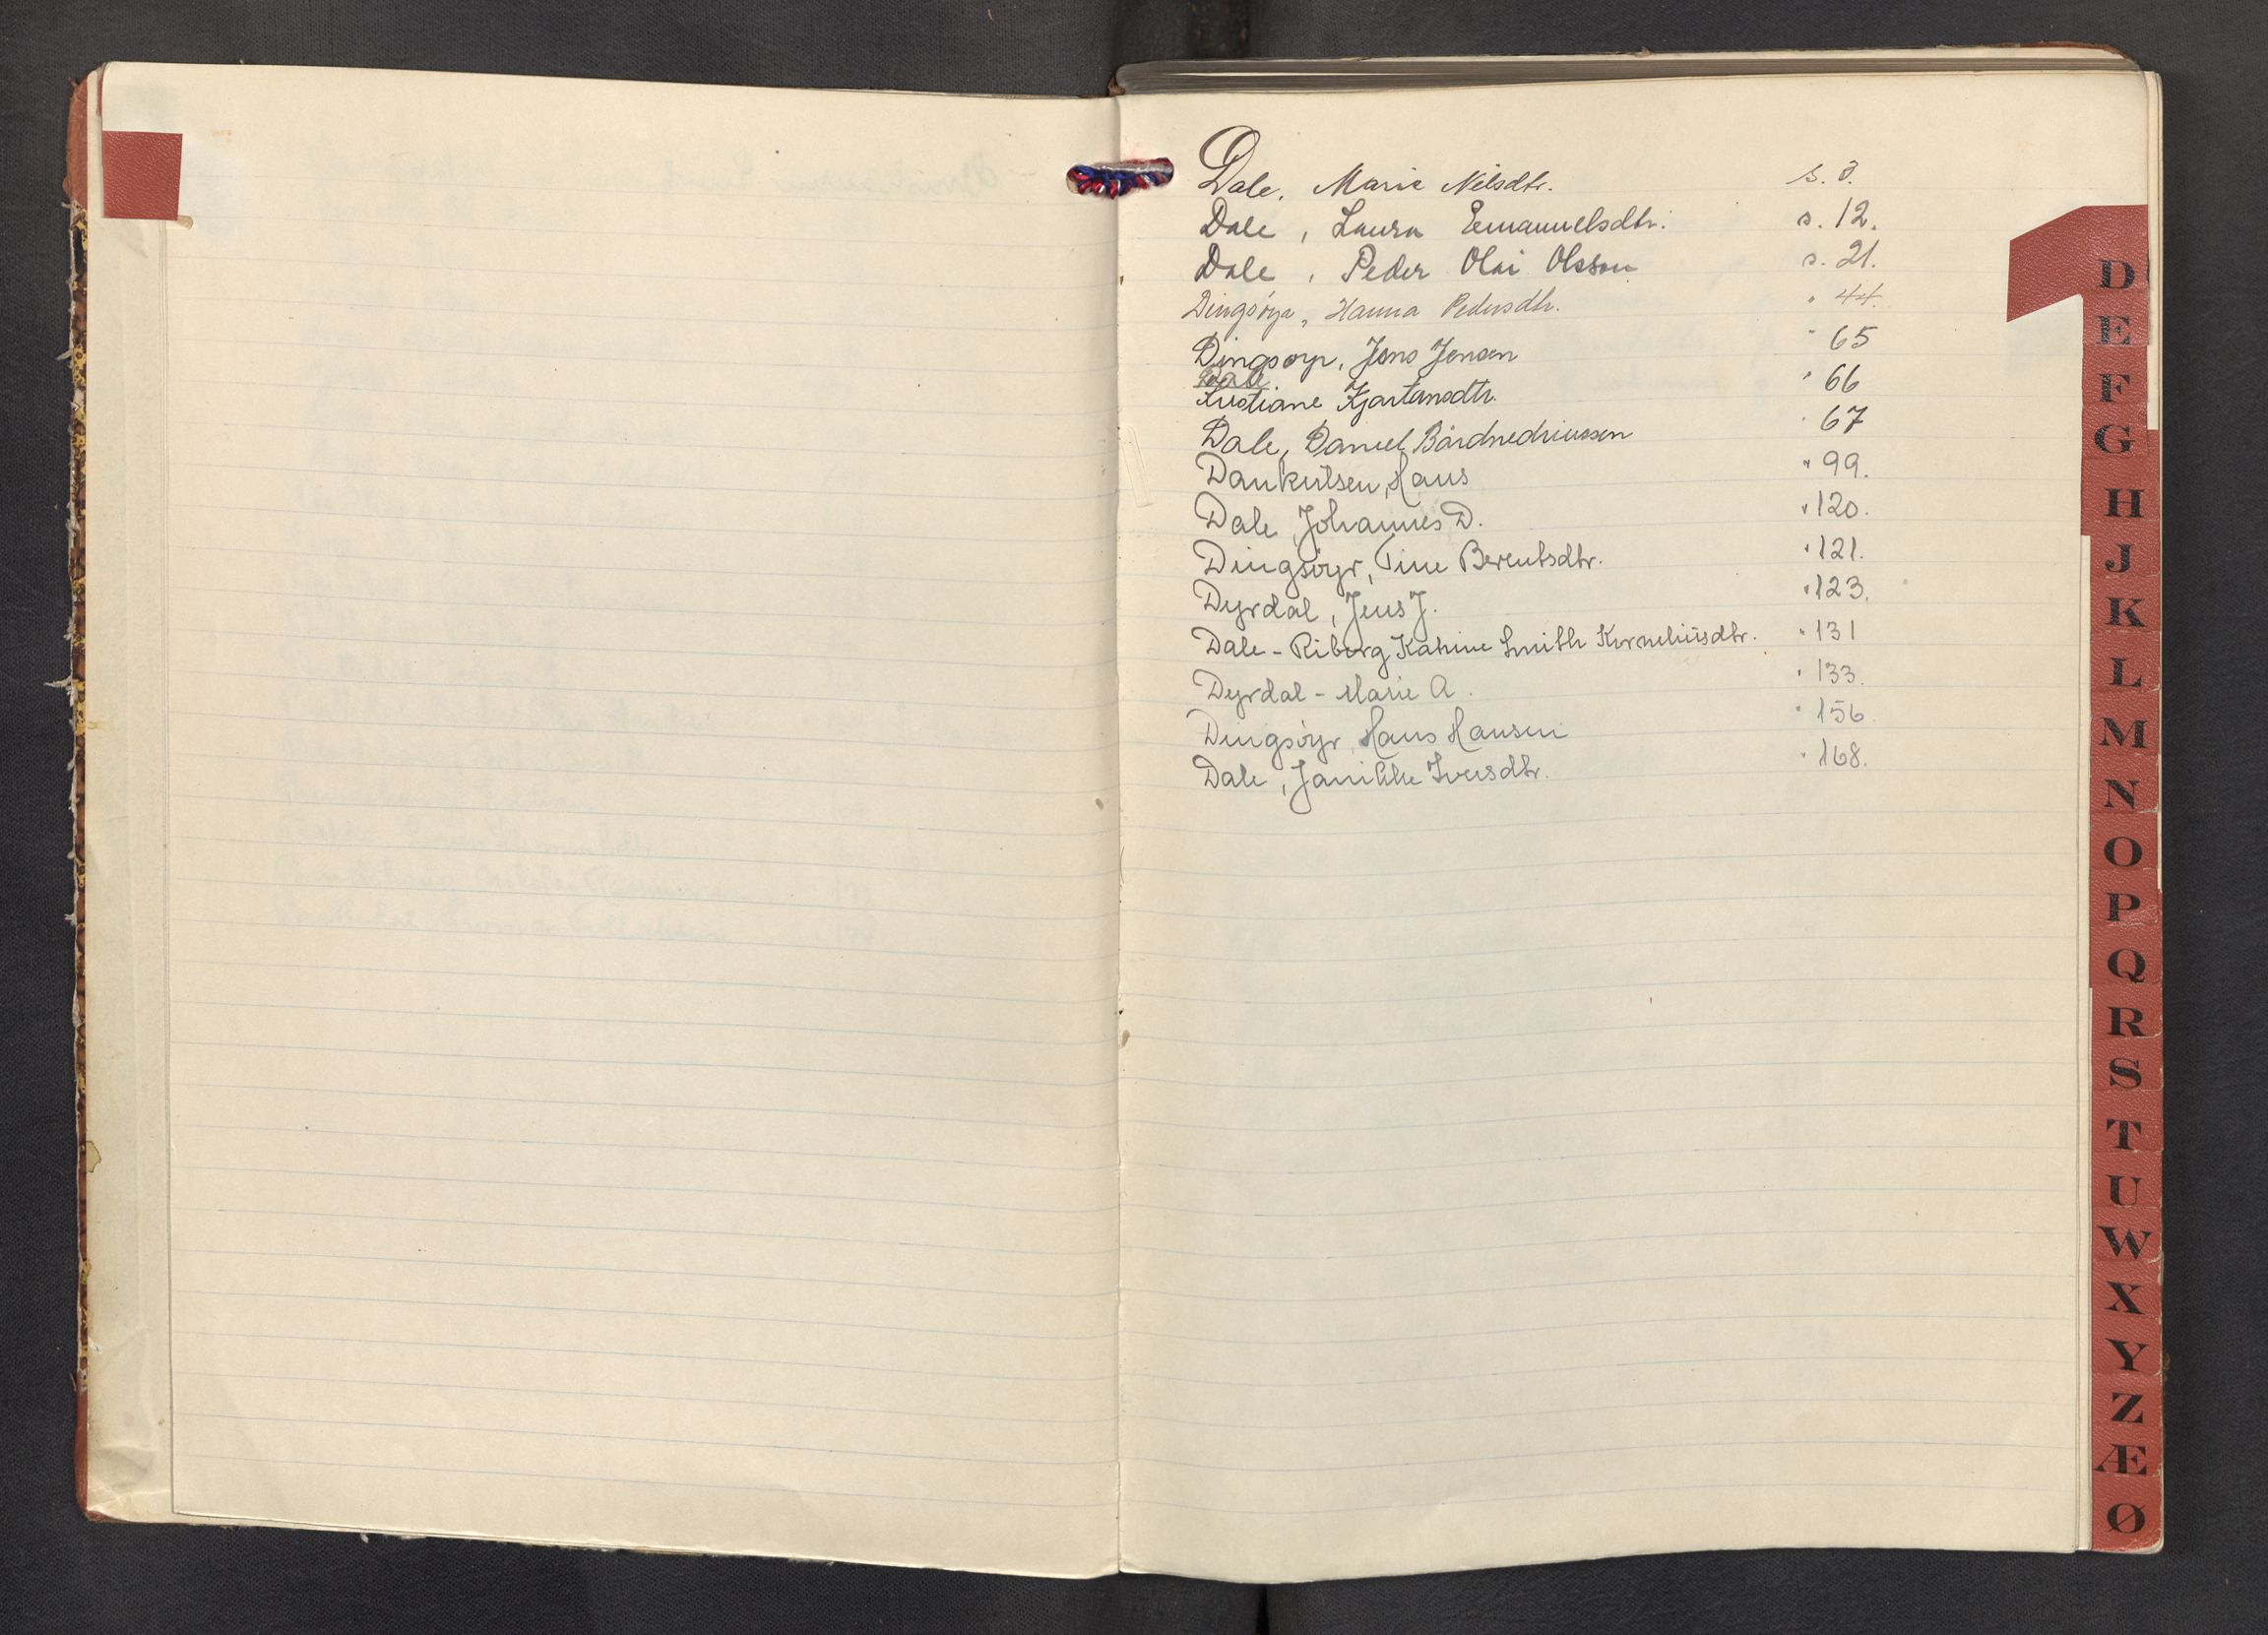 Dale, Marie Nilsdtr. s. 3.
Dale, Laura Emanuelsdtr. s. 12.
Dale, Peder Olai Olsson s. 21.
Dingsøyr, Hanna Pedersdtr. " 44.
Dingsøyr, Jens Jensen " 65
Dale
Kristiane Kjartansdtr. " 66
Dale, Daniel " 67
Dankertsen, Hans " 99.
Dale, Johannes D. " 120.
Dingsøyr, Tine Berentsdtr. " 121.
Dyrdal, Jens J. " 123.
Dale - Riborg Katrine Smith Korneliusdtr. " 131
Dyrdal - Marie A. " 133.
Dingsøyr, Hans Hansen " 156.
Dale, Janikke Iversdtr. " 168.
D
E
F
G
H
J
K
L
M
N
O
P
Q
R
S
T
U
W
X
Y
Z
Æ
Ø